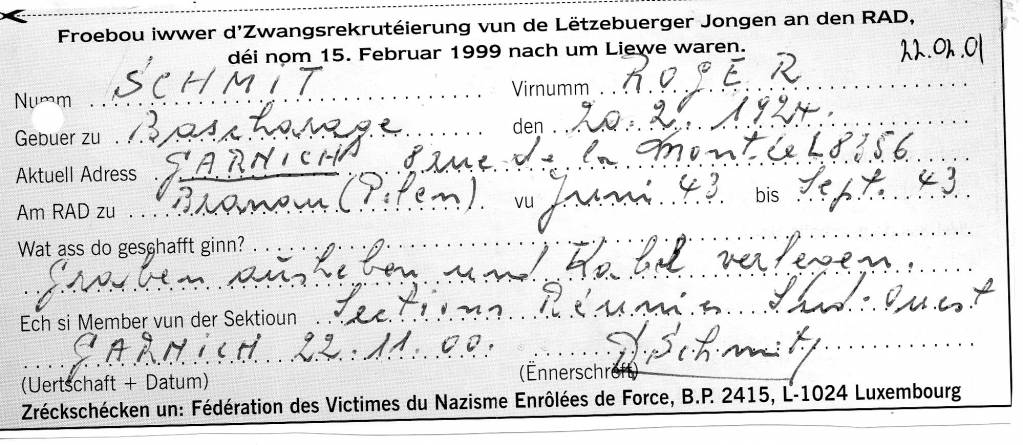 Froebou iwwer d'Zwangsrekrutéierung vun de Lëtzebuerger Jongen an den RAD,
déi nom 15. Februar 1999 nach um Liewe waren.
22.02.01
Numm SCHMIT Virnumm ROGER
Gebuer zu Bascharage den 20.2.1924.
Aktuell Adress GARNICH 8 rue de la Montée L8356
Am RAD zu (Pilen) vu Juni 43 bis Sept. 43
Wat ass do geschafft ginn?
Graben ausheben und Kabel verlegen.
Ech si Member vun der Sektioun Sections Réunies Sud-Ouest
GARNICH 22.11.00. RSchmit
(Uertschaft + Datum) (Ennerschrëft)
Zréckschécken un: Fédération des Victimes du Nazisme Enrôlées de Force, B.P. 2415, L-1024 Luxembourg